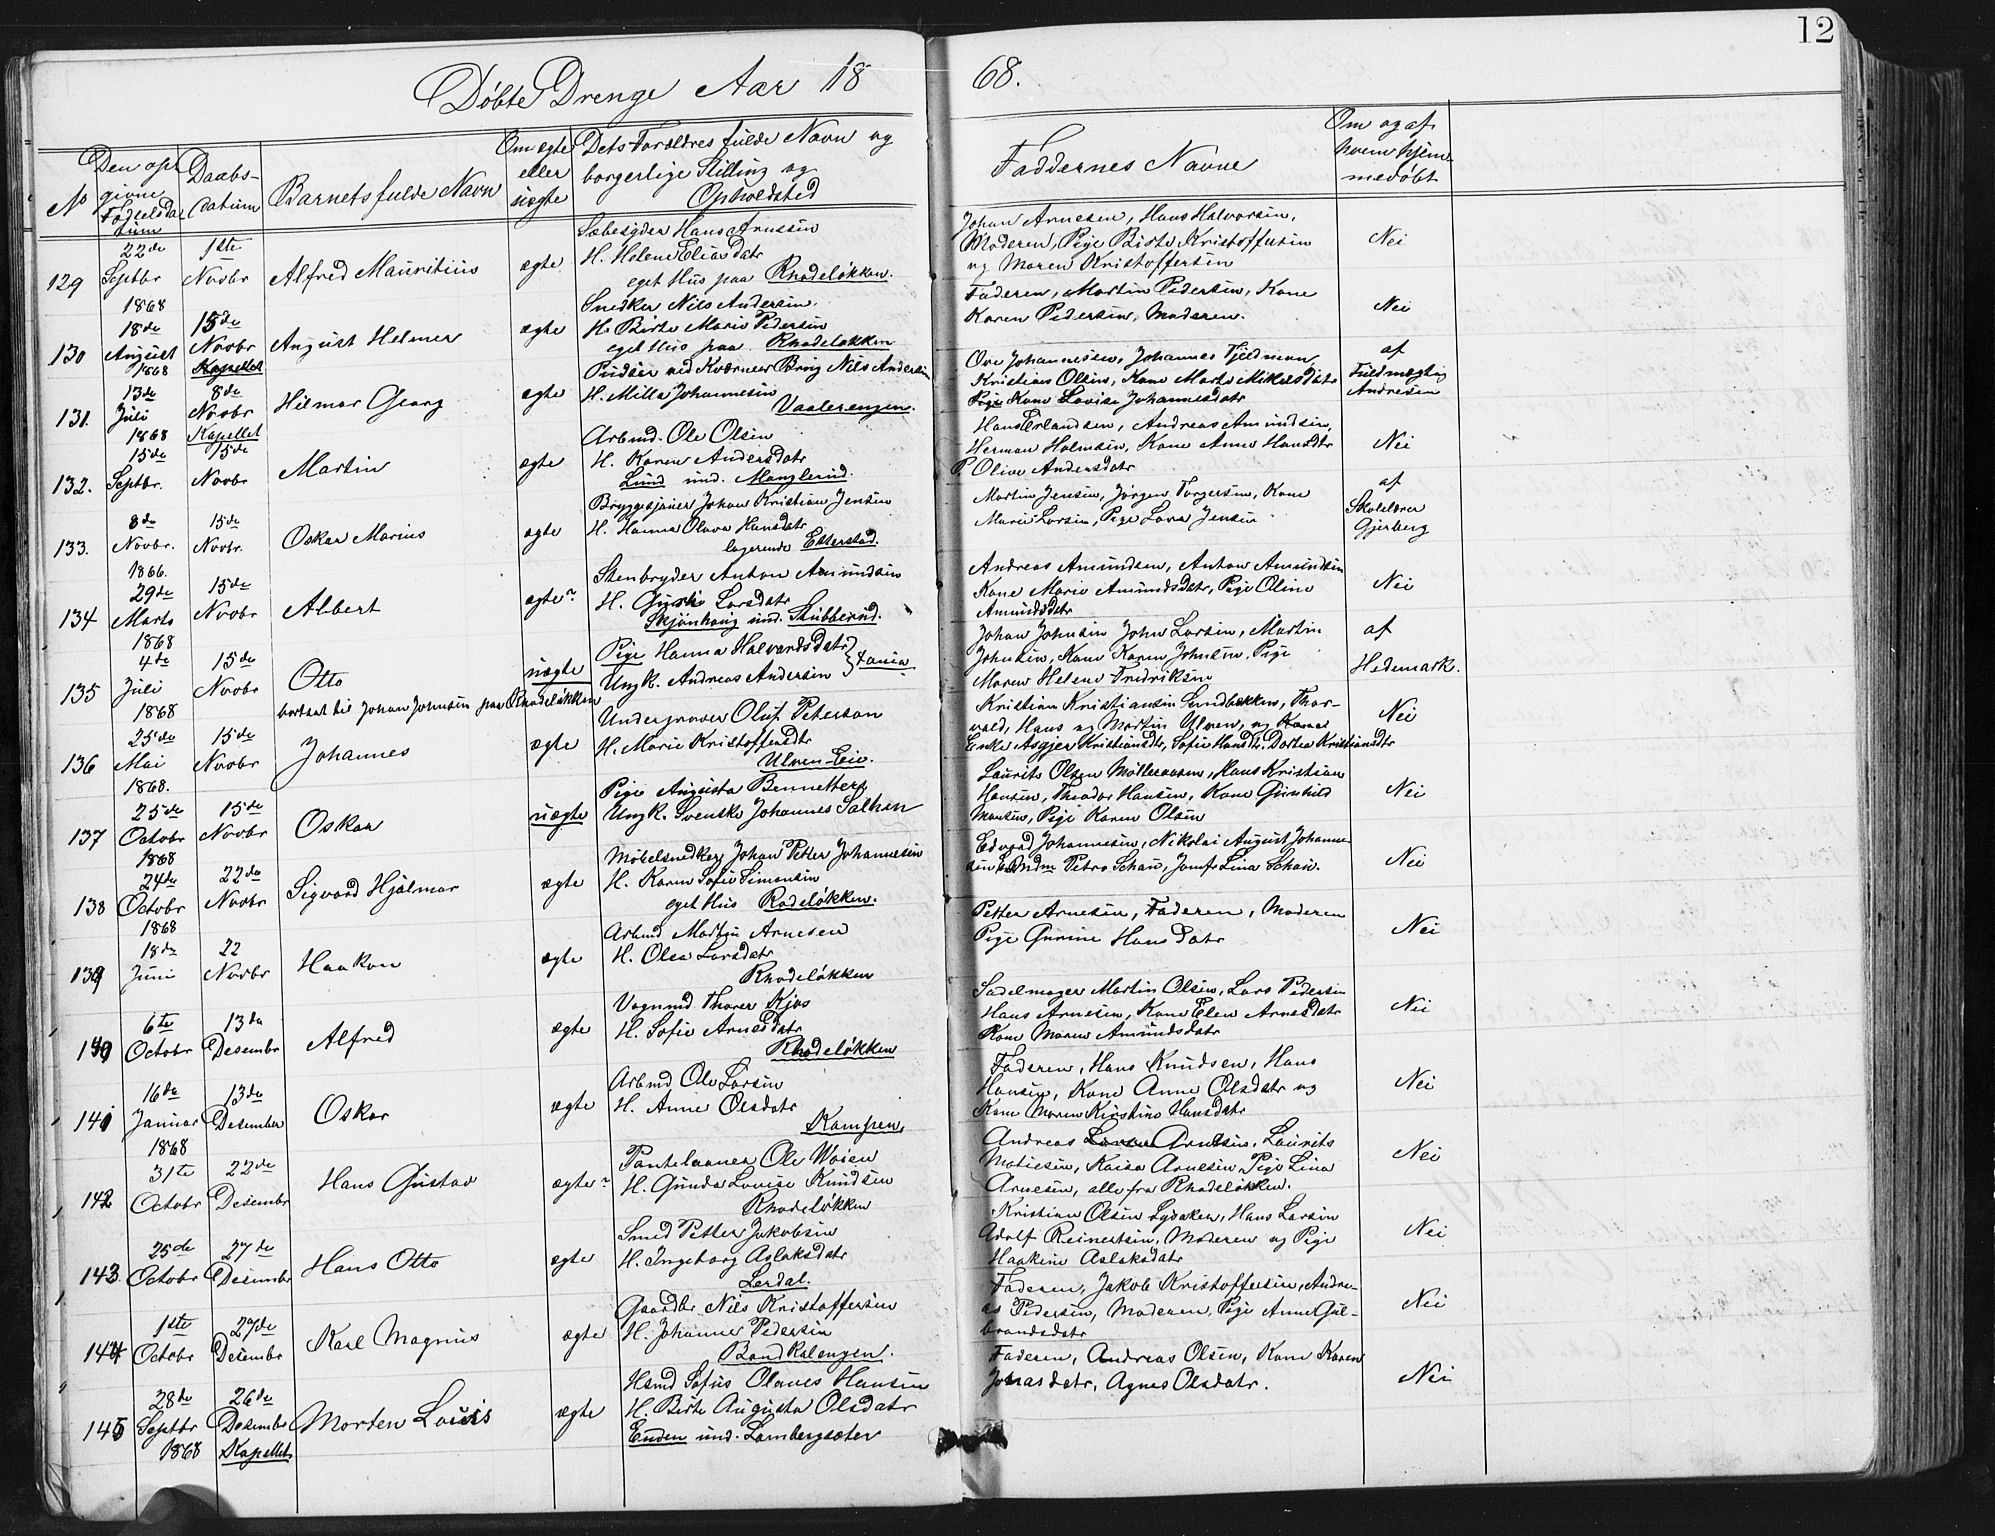 12
Døbte Drenge Aar 18 68.
No
Den op-
givne
Fødselsda-
tum
Daabs-
datum
Barnets fulde Navn
Om ægte
eller
uægte
Dets Forældres fulde Navn og
borgerlige Stilling og
Opholdsted
Faddernes Navne
Om og af
hvem hjem-
medøbt
129
22de
Septbr
1868
1ste
Novbr
Alfred Mauritius
ægte
Sæbesyder Hans Arnesen
H. Helene Eliasdatr
eget Hus paa Rhodeløkken.
Johan Arnesen, Hans Halvorsen,
Moderen, Pige Birte Kristoffersen
og Maren Kristoffersen
Nei
130
18de
August
1868
15de
Novbr
Kapellet
August Helmer
ægte
Snedker Nils Andersen.
H. Birte Marie Pedersen
eget Hus paa Rhodeløkken
Faderen, Martin Pedersen, Kone
Karen Pedersen, Moderen.
Nei
131.
13de
Juli
1868
8de
Novbr
Kapellet
Hilmar Georg
ægte
Pudser ved Kværner Brug Nils Andersen
H. Milla Johannesen
Vaalerengen.
Ove Johannesen, Johannes Fjeldman,
Kristian Olsen, Kone Marte Mikkelsdatr
Pige Kone Lovise Johannesdatr
af
Fuldmægtig
Andresen
132.
15de
Septbr.
15de
Novbr
Martin
ægte
Arbmd. Ole Olsen
H. Karen Andersdatr
Lund und. Manglerud.
Hans Erlandsen, Andreas Amundsen,
Herman Holmsen, Kone Anne Hansdtr
P. Olive Andersdatr
Nei
133.
8de
Novbr.
1866.
15de
Novbr.
Oskar Marius
ægte
Bryggesjauer Johan Kristian Jensen
H. Hanna Olava Hansdatr
logerende Etterstad.
Martin Jensen, Jørgen Torgersen, Kone
Marie Larsen, Pige Lava Jensen
af
Skolelærer
Gjerberg
134
29de
Marts
1868
15de
Novbr
Albert
ægte
Stenbryder Anton Amundsen
H. Gurie Larsdatr
Skjønhaug und. Stubberud.
Andreas Amundsen, Anton Amundsen
Kone Marie Amundsdatr, Pige Oline
Amundsdatr
Nei
135
4de
Juli
1868
15de
Novbr
Otto
bortsat til Johan Johnsen paa Rhodeløkken
uægte
Pige Hanna Halvordsdatr
Ungk. Andreas Andersen
Xania
Johan Johnsen John Larsen, Martin
Johnsen, Kone Karen Johnsen, Pige
Maren Helene Fredriksen
af
Hedemark.
136
25de
Mai
1868.
15de
Novbr
Johannes
ægte
Undergraver Oluf Peterson
H. Marie Kristoffersdtr
Ulven-Eie.
Kristian Kristiansen Lundbækken, Thor-
vald, Hans og Martin Ulven, og Kone
Enke Asgjer Kristiansdtr, Sofie Hansdtr. Dortea Kristiansdtr
Nei
137
25de
Octobr
1868
15de
Novbr
Oskar
uægte
Pige Augusta Bennetter
Ungk. Svenske Johannes Salhan
Laurits Olsen Møllerausen, Hans Kristian
Hansen, Theodor Hansen, Kone Gunhild
Monsen, Pige Karen Olsen
Nei
138
24de
Octobr
1868
22de
Novbr
Sigvard Hjalmar
ægte
Møbelsnedker Johan Petter Johannesen
H. Karen Sofie Simonsen
eget Hus Rodeløkken.
Edvard Johannesen, Nikolai August Johanne-
sen Petra Schau, Jomfr Lina Schau.
Nei
139
18de
Juni
22
Novbr
Haakon
ægte
Arbmd Martin Arnesen
H. Olea Larsdatr
Rhodeløkken
Petter Arnesen, Faderen, Moderen
Pige Gurine Hansdatr
Nei
140
6te
Octobr
13de
Desembr
Alfred
ægte
Vognmd Thorer Kjos
H. Sofie Arnesdatr
Rhodeløkken
Sadelmager Martin Olsen, Lars Pedersen
Hans Arnesen, Kone Elen Arnesdatr
Kone Maren Amundsdatr
Nei
141
16de
Januar
1868
13de
Desember
Oskar
ægte
Arbmd Ole Larsen
H. Anne Olsdatr
Kampen.
Faderen, Hans Knudsen, Hans
Hansen, Kone Anne Olsdatr og
Kone Maren Kirstine Hansdatr
Nei
142
31te
Octobr
22de
Desembr
Hans Gustav
ægte
Pantelaaner Ole Moien
H. Gunda Lovise Knudsen
Rhodeløkken
Andreas Larsen Arnesen, Laurits
Matiesen, Kaisa Arnesen, Pige Lina
Arnesen, alle fra Rhodeløkken.
Nei
143
25de
Octobr
27de
Desembr
Hans Otto
ægte
Smed Petter Jakobsen
H. Ingeborg Aslaksdatr
Lerdal.
Kristian Olsen Lydaken, Hans Larsen
Adolf Reinertsen, Moderen og Pige
Haakine Aslaksdatr
Nei
144
1ste
Octobr
27de
Desembr
Karl Magnus
ægte
Gaardbr Nils Kristoffersen
H. Johanne Pedersen
Bondkalengen.
Faderen, Jakob Kristoffersen, Andre-
as Pedersen, Moderen, Pige Anne Gul-
brandsdatr
Nei
145
28de
Septbr
1868
26de
Desembr
Kapellet
Morten Louis
ægte
Hsmd Sofus Olaves Hansen
H. Birte Augusta Olsdatr
Enden und. Lambergsæter
Faderen, Andreas Olsen, Kone Karen
Jonasdatr, Agnes Olsdatr.
Nei